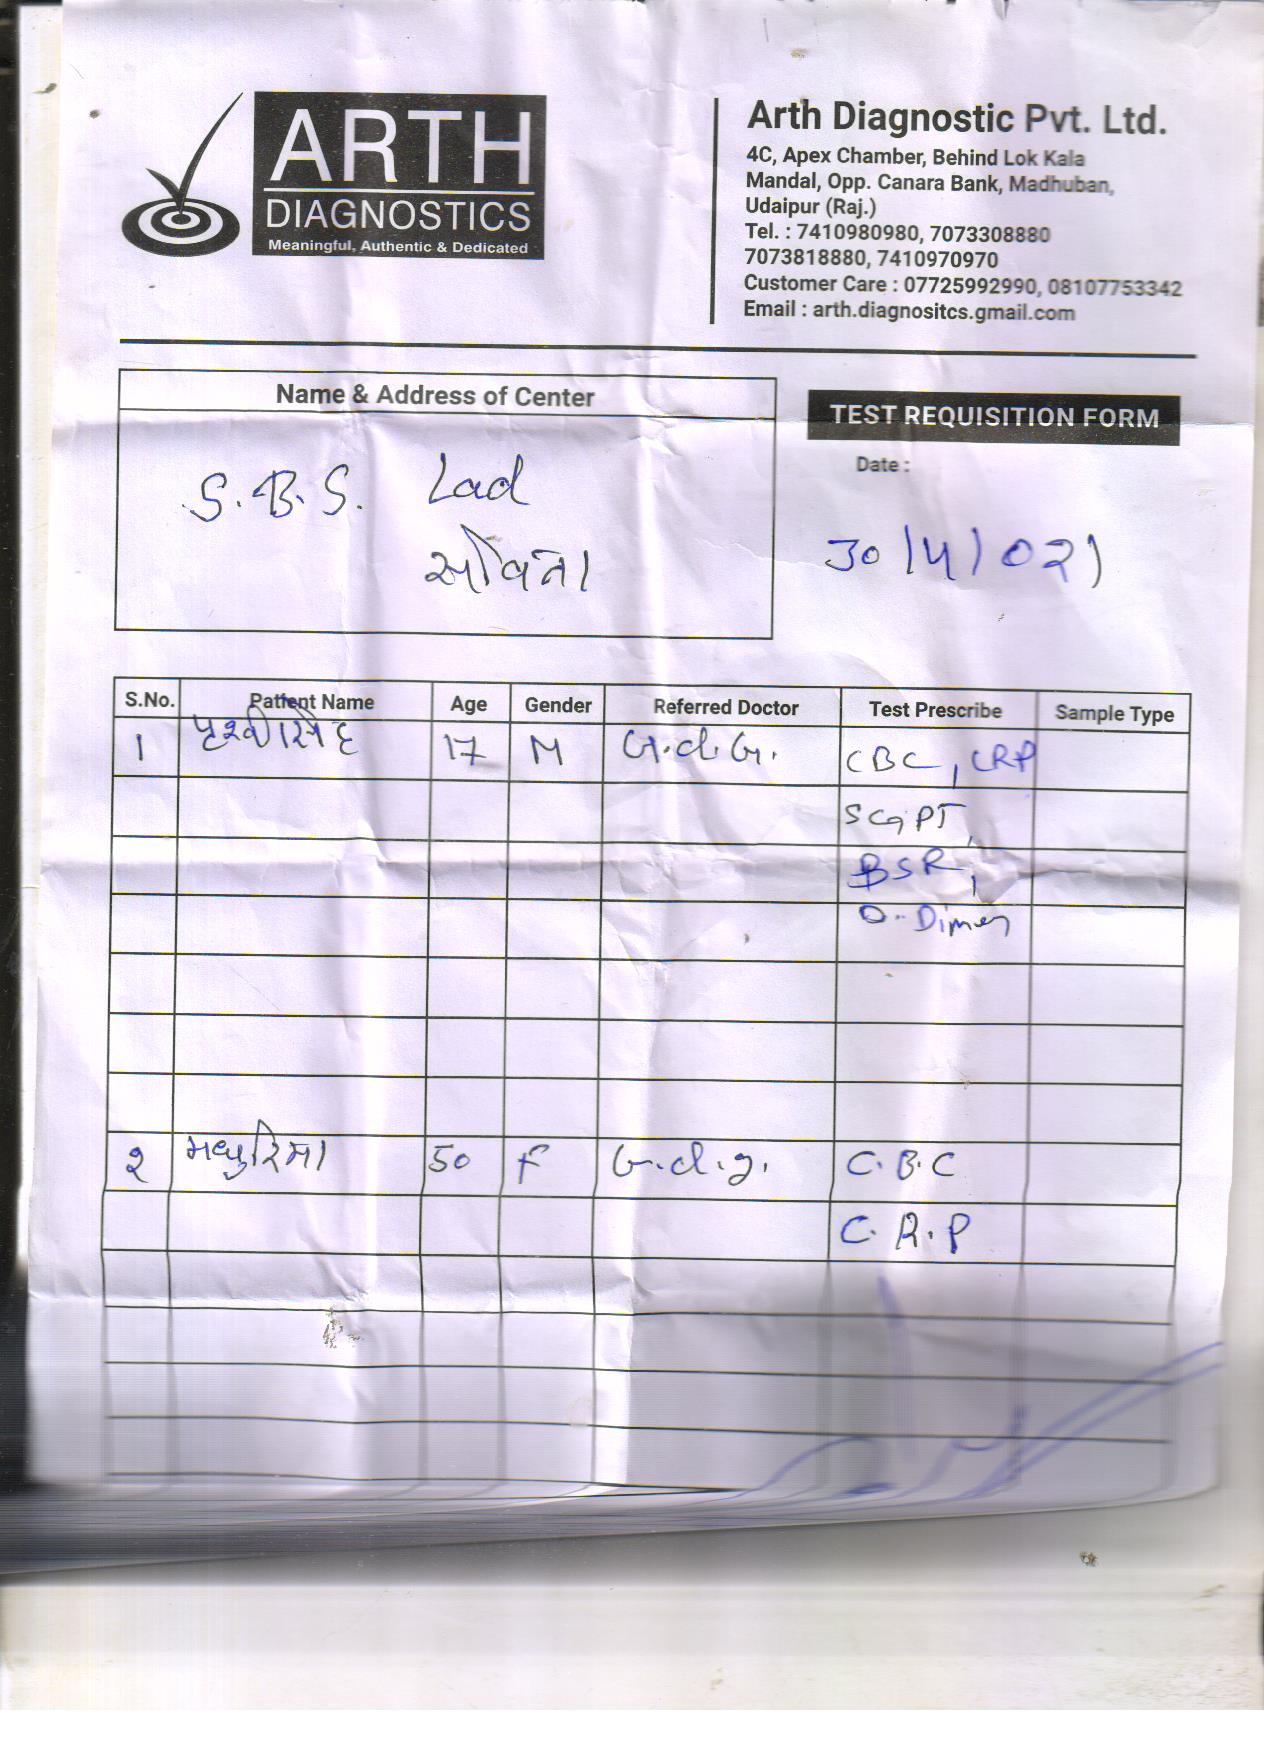 ARTH
DIAGNOSTICS
Meaningful, Authentic & Dedicated
Arth Diagnostic Pvt. Ltd.
4C, Apex Chamber, Behind Lok Kala
Mandal, Opp. Canara Bank, Madhuban,
Udaipur (Raj.)
Tel. : 7410980980, 7073308880
7073818880, 7410970970
Customer Care : 07725992990, 08107753342
Email : arth.diagnositcs.gmail.com
Name & Address of Center
S.B.S. Lad
TEST REQUISITION FORM
Date :
30/4/021
S.No. Patient Name Age Gender Referred Doctor Test Prescribe Sample Type
1 पृथ्वीसिंह 17 M G.d.G. CBC, CRP
SGPT,
BSR,
D-Dimer
२ मधुरिमा 50 F G.d.g. C.B.C
C.R.P